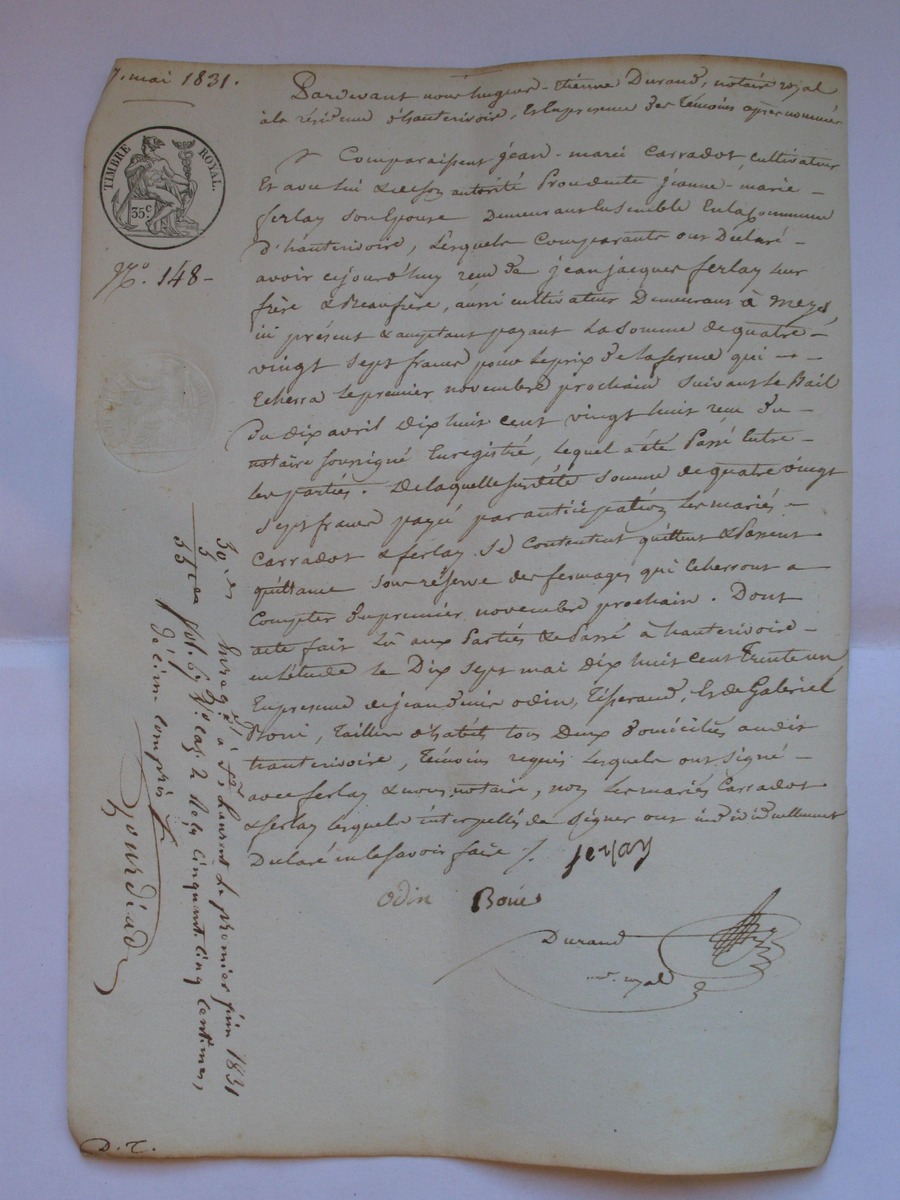 7. mai 1831.
Pardevant nous hugues-Etienne Durand, notaire royal
à la résidence d'hauterivoire, Et En presence des Témoins après nommés
TIMBRE ROYAL.
35c
Comparaissent jean-marie Carradot cultivateur
Et avec lui & de son autorité Procédente jeanne-marie
ferlay son Epouse Demeurans Ensemble En la Commune
d'hauterivoire, Lesquels Comparants ont Déclaré
avoir cejourd'huy reçu de jean jacques ferlay leur
No. 148
frère & Beaufrère, aussi cultivateur Demeurans à meys,
ici présent & acceptant payant La somme de quatre
vingt sept francs pour le prix de la ferme qui
Echerra le premier novembre prochain suivant le Bail
du dix avril dix huit cent vingt huit reçu du
notaire soussigné Enregistré, lequel a été Passé Entre
les parties. De laquelle susdite somme de quatre vingt
sept francs payée par anticipation les mariés
Carradot & ferlay se contentent quittent & Passent
quittance sous réserve des fermages qui Echerront a
Compter du premier novembre prochain. Dont
acte fait Lû aux Parties & Passé à hauterivoire
en l'étude le Dix sept mai dix huit cent Trente un
En presence de jean odin, Tisserand, Et de Gabriel
Tailleur d'habits tous Deux domiciliés audit
hauterivoire, Témoins requis lesquels ont signé
avec ferlay & nous notaire, non les mariés Carradot
& ferlay lesquels interpellés de signer ont individuellement
Déclaré ne le savoir faire ./. ferlay
odin
Durand
re. royal
Enregé à St. Laurent le premier juin 1831
fol. 69 Vo. Cas. 2 Reçu Cinquante Cinq Centimes,
décime compris
Gourdiad
D. T.